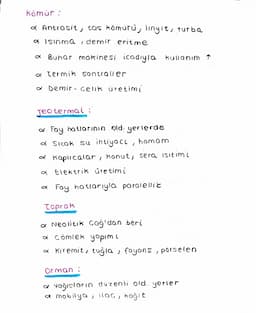 Kömür :
∝ Antrasit, taş kömürü, linyit, turba
∝ Isınma, demir eritme
∝ Buhar makinesi icadıyla kullanım ↑
∝ Termik santraller
∝ Demir-çelik üretimi
Jeotermal :
∝ Fay hatlarının old. yerlerde
∝ Sıcak su ihtiyacı, hamam
∝ Kaplıcalar, konut, sera ısıtımı
∝ Elektrik üretimi
∝ Fay hatlarıyla paralellik
Toprak
∝ Neolitik Çağ'dan beri
∝ Çömlek yapımı
∝ Kiremit, tuğla, fayans, porselen
Orman :
∝ Yağışların düzenli old. yerler
∝ mobilya, ilaç, kağıt